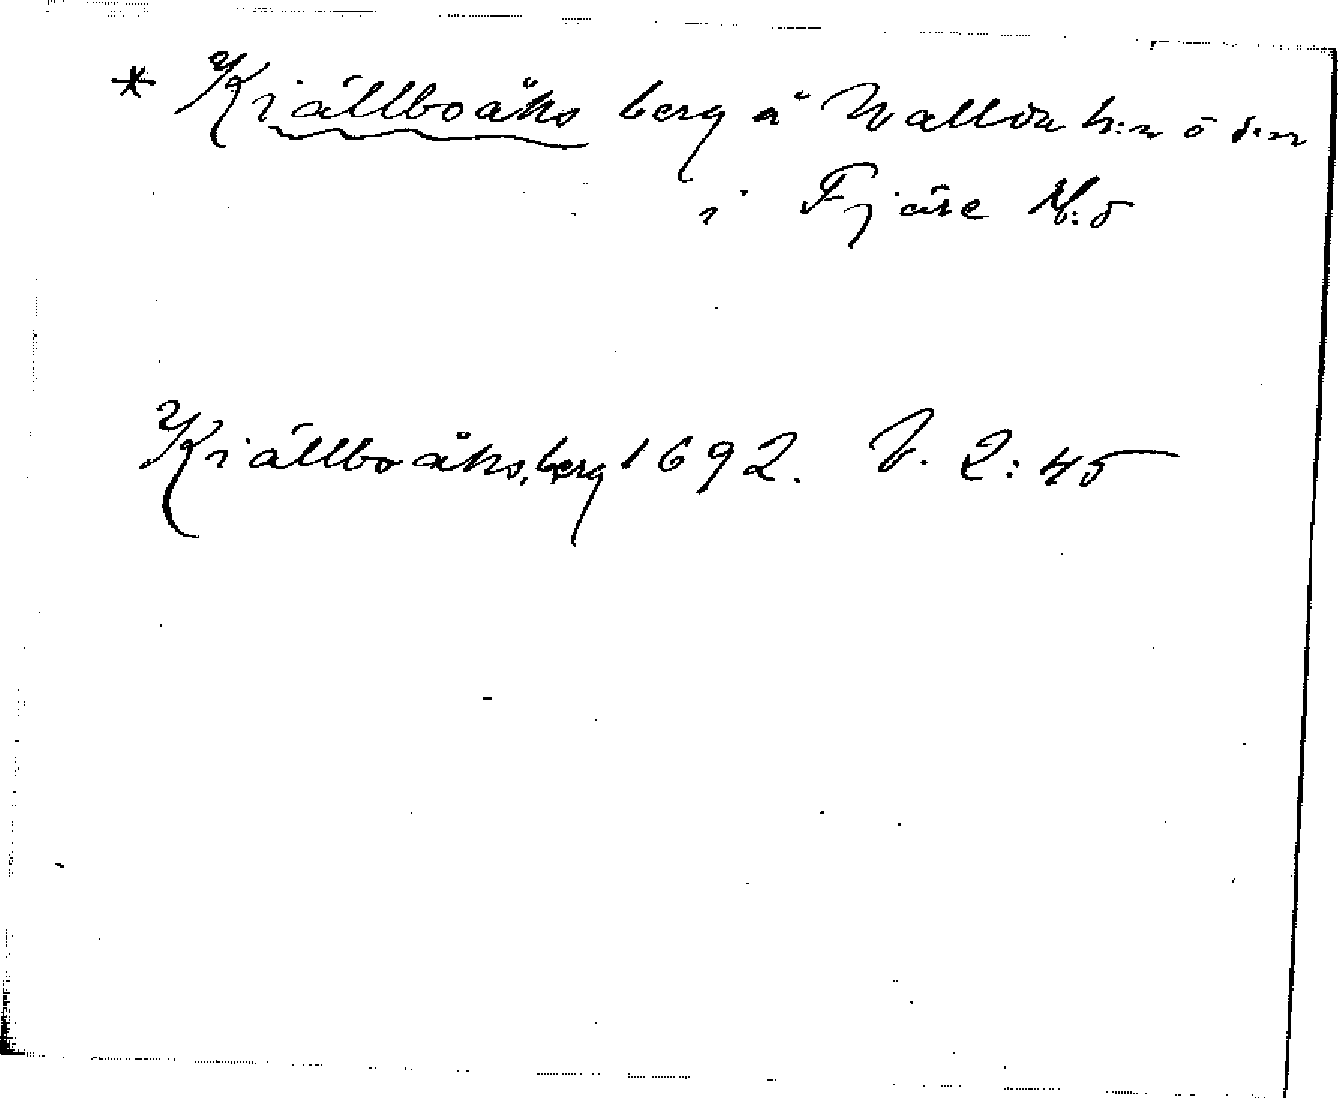 * Kiällboåks berg å Walda h:n o s:n
i Fjäre H:d
Kiällboåks berg 1692. V. 2:45